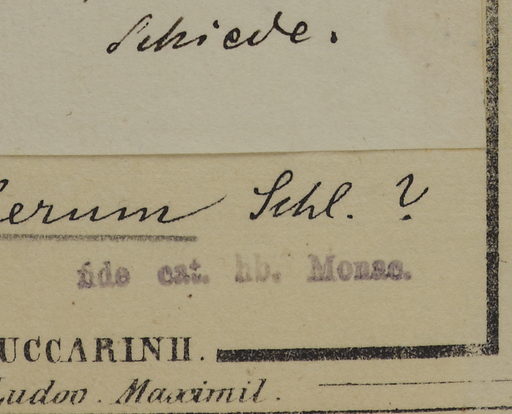 Schiede.
erum Schl. ?
fide cat. hb. Monac.
UCCARINII.
Ludov. Maximil.